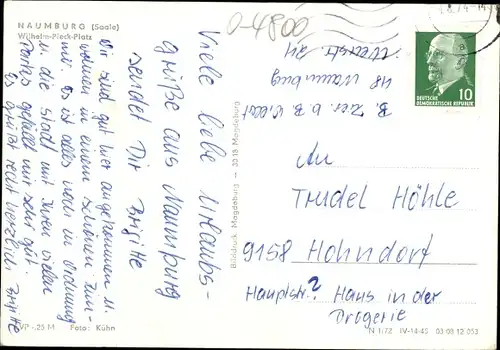 NAUMBURG (Saale)
Wilhelm-Pieck-Platz
Viele liebe Urlaubs-
grüße aus Naumburg
sendet Dir Brigitte
Wir sind gut hier angekommen u.
wohnen in einem schönen Zim-
mer. Es ist alles noch in Ordnung
u. die Stadt mit ihren vielen
Parks gefällt mir sehr gut.
Es grüßt recht herzlich Brigitte
VP -,25 M Foto: Kühn
Bild und Druck, Magdeburg — 3018 Magdeburg
0-4800
48 Naumburg
10
DEUTSCHE
DEMOKRATISCHE REPUBLIK
An
Trudel Höhle
9158 Hohndorf
Hauptstr.? Haus in der
Drogerie
N 1/72 IV-14-45 03 09 12 053